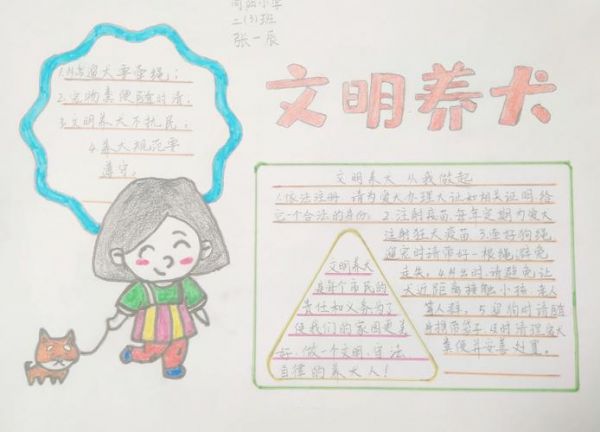 二(3)班
张一辰
文明养犬
1.外出遛犬要牵绳;
2.宠物粪便随时清,
3.文明养犬不扰民,
4.养犬规范要
遵守。
文明养犬 从我做起
1.依法注册 请为爱犬办理犬证如相关证明,给
它一个合法的身份。2.注射疫苗,每年定期为爱犬
注射狂犬疫苗 3.拴好狗绳
遛它时请带好一根绳,避免
走失。4.外出时,请避免让
犬近距离接触小孩 老人
等人群。5.遛狗时请随
身携带袋子,及时清理爱犬
粪便并妥善处置。
文明养犬
是每个市民的
责任和义务为了
使我们的家园更美
好,做一个文明、守法、
自律的养犬人!